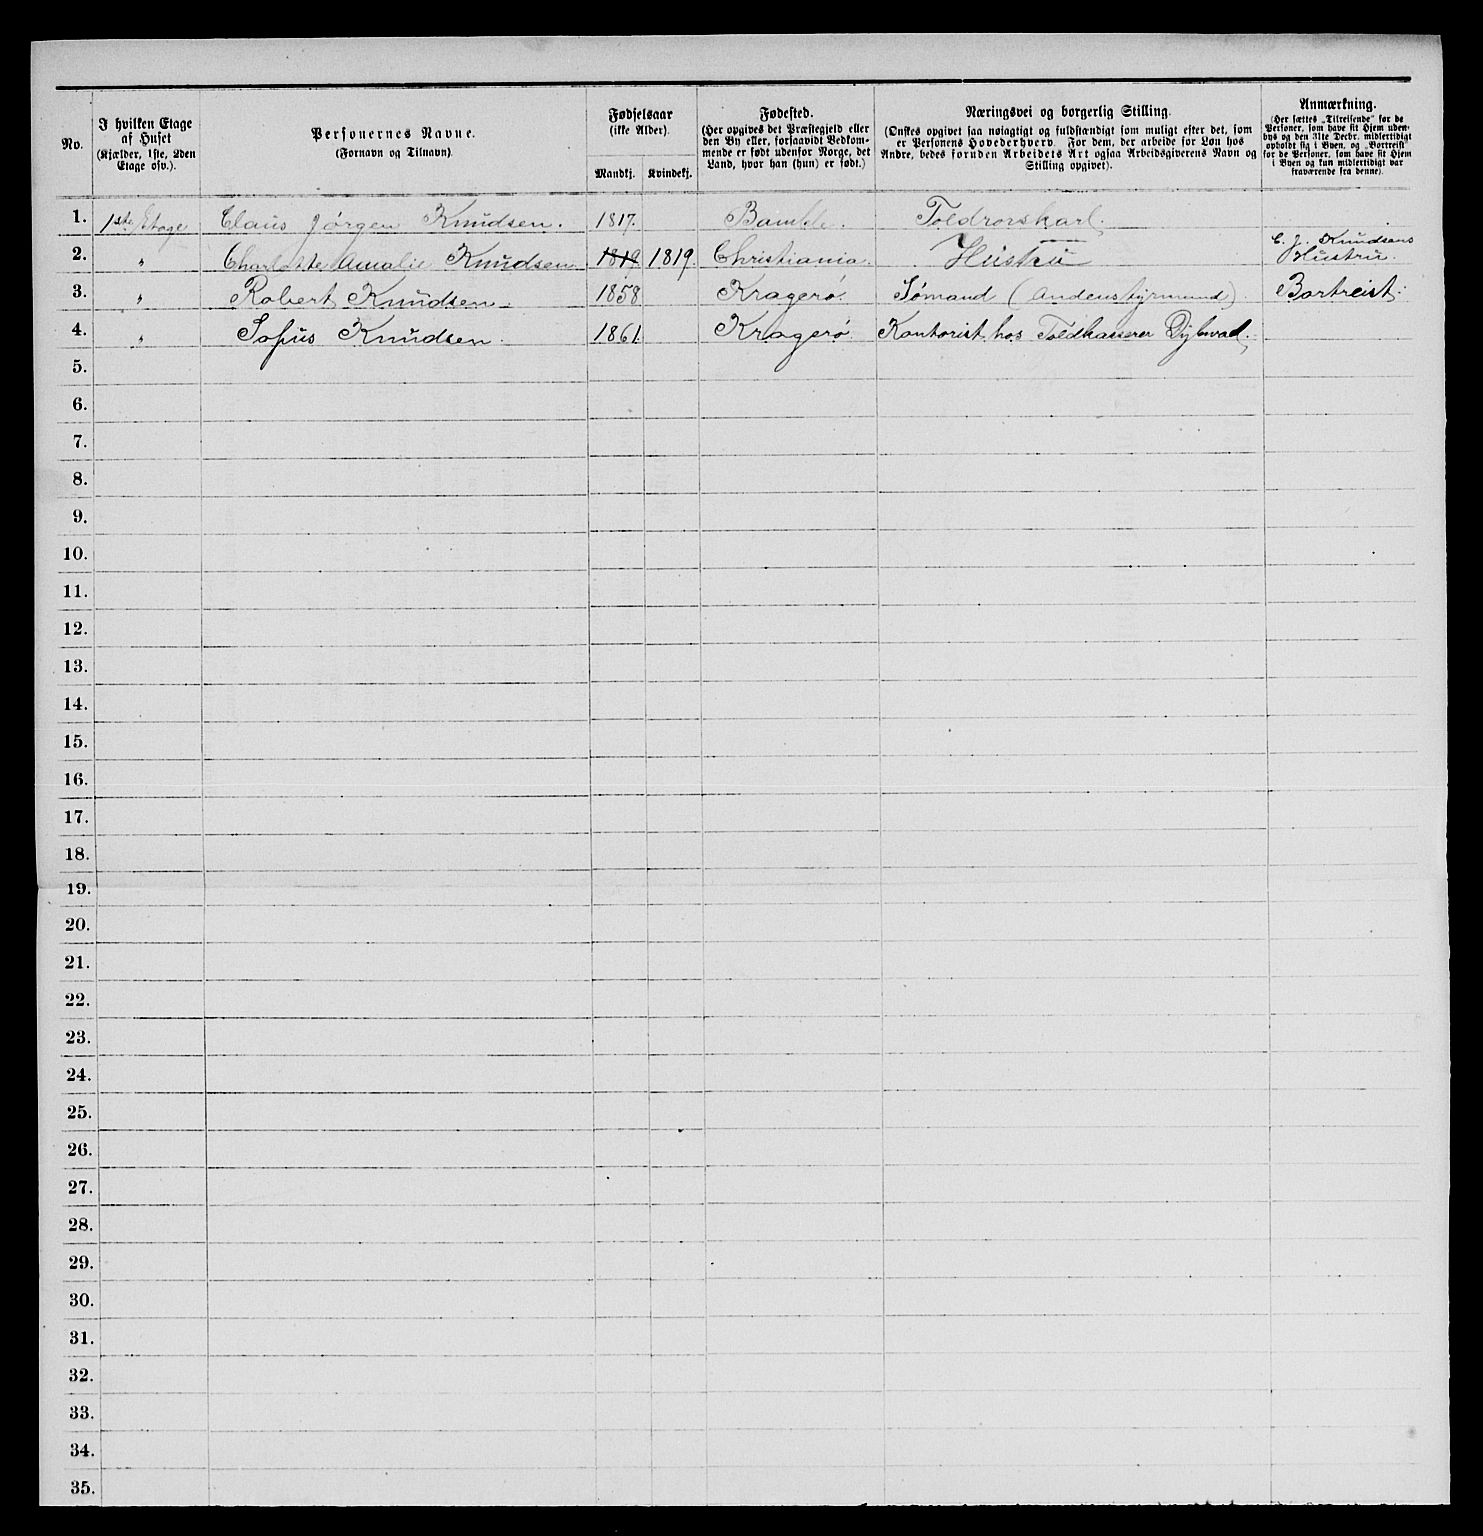 No.
I hvilken Etage
af Huset
(Kjælder, 1ste, 2den
Etage osv.).
Personernes Navne.
(Fornavn og Tilnavn).
Fødselsaar
(ikke Alder).
Mandkj.
Kvindekj.
Fødested.
(Her opgives det Præstegjeld eller
den By eller, forsaavidt Vedkom-
mende er født udenfor Norge, det
Land, hvor han (hun) er født.)
Næringsvei og borgerlig Stilling.
(Ønskes opgivet saa nøiagtigt og fuldstændigt som muligt efter det, som
er Personens Hovederhverv. For dem, der arbeide for Løn hos
Andre, bedes foruden Arbeidets Art ogsaa Arbeidsgiverens Navn og
Stilling opgivet).
Anmærkning.
(Her sættes „Tilreisende" for de
Personer, som have sit Hjem uden-
bys og den 31te Decbr. midlertidigt
opholdt sig i Byen, og „Bortreist"
for de Personer, som have sit Hjem
i Byen og kun midlertidigt var
fraværende fra denne).
1. 1ste Etage Claus Jørgen Knudsen. 1817. Bamble. Toldrorskarl.
2. " Charlotte Amalie Knudsen 1819 1819. Christiania. Hustru C. J. Knudsens
Hustru.
3. " Robert Knudsen 1858 Kragerø. Sømand (Andenstyrmand) Bortreist.
4. " Sofus Knudsen. 1861. Kragerø Kontorist hos Toldkasserer Dybwad.
5.
6.
7.
8.
9.
10.
11.
12.
13.
14.
15.
16.
17.
18.
19.
20.
21.
22.
23.
24.
25.
26.
27.
28.
29.
30.
31.
32.
33.
34.
35.